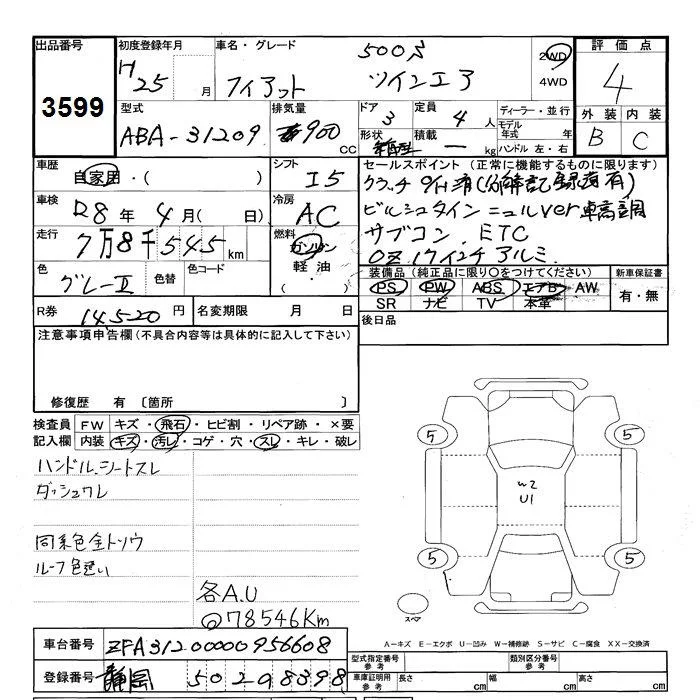 出品番号 初度登録年月 車名・グレード 評価点
3599
H25 月 フィアット 500S ツインエア 2WD 4WD 4
型式 排気量 ドア 定員 ディーラー・並行 外装 内装
ABA-31209 900 CC 3 4 人 モデル年式 年 B C
形状 積載 ー kg ハンドル 左・右
車歴 シフト セールスポイント (正常に機能するものに限ります)
自家用・( ) I5
クラッチ O/H済(分解記録簿有)
車検 冷房 ビルシュタイン ver 車高調
R8年 4月( 日) AC サブコン. ETC
走行 燃料 OZ.17インチアルミ.
7万8千545 km ガソリン・軽油・( )
色 色替 色コード 装備品 (純正品に限り○をつけてください) 新車保証書
グレーⅡ PS PW ABS エアB AW 有・無
SR ナビ TV 本革
R券 14520 円 名変期限 月 日 後日品
注意事項申告欄(不具合内容等は具体的に記入して下さい)
修復歴 有 〔箇所 〕
検査員 FW キズ・飛石・ヒビ割・リペア跡・×要
記入欄 内装 キズ・汚レ・コゲ・穴・スレ・キレ・破レ
ハンドル.シートスレ
ダッシュワレ
5 5
W2
U1
同系色全トソウ
ルーフ色違い
5 5
各A.U
@78546Km
スペア
A-キズ E-エクボ U-凹み W-補修跡 S-サビ C-腐食 XX-交換済
車台番号 ZFA31200000956608
型式指定番号 参考 類別区分番号 参考
登録番号 静岡 502 98398
車庫証明用 参考 長さ cm 幅 cm 高さ cm